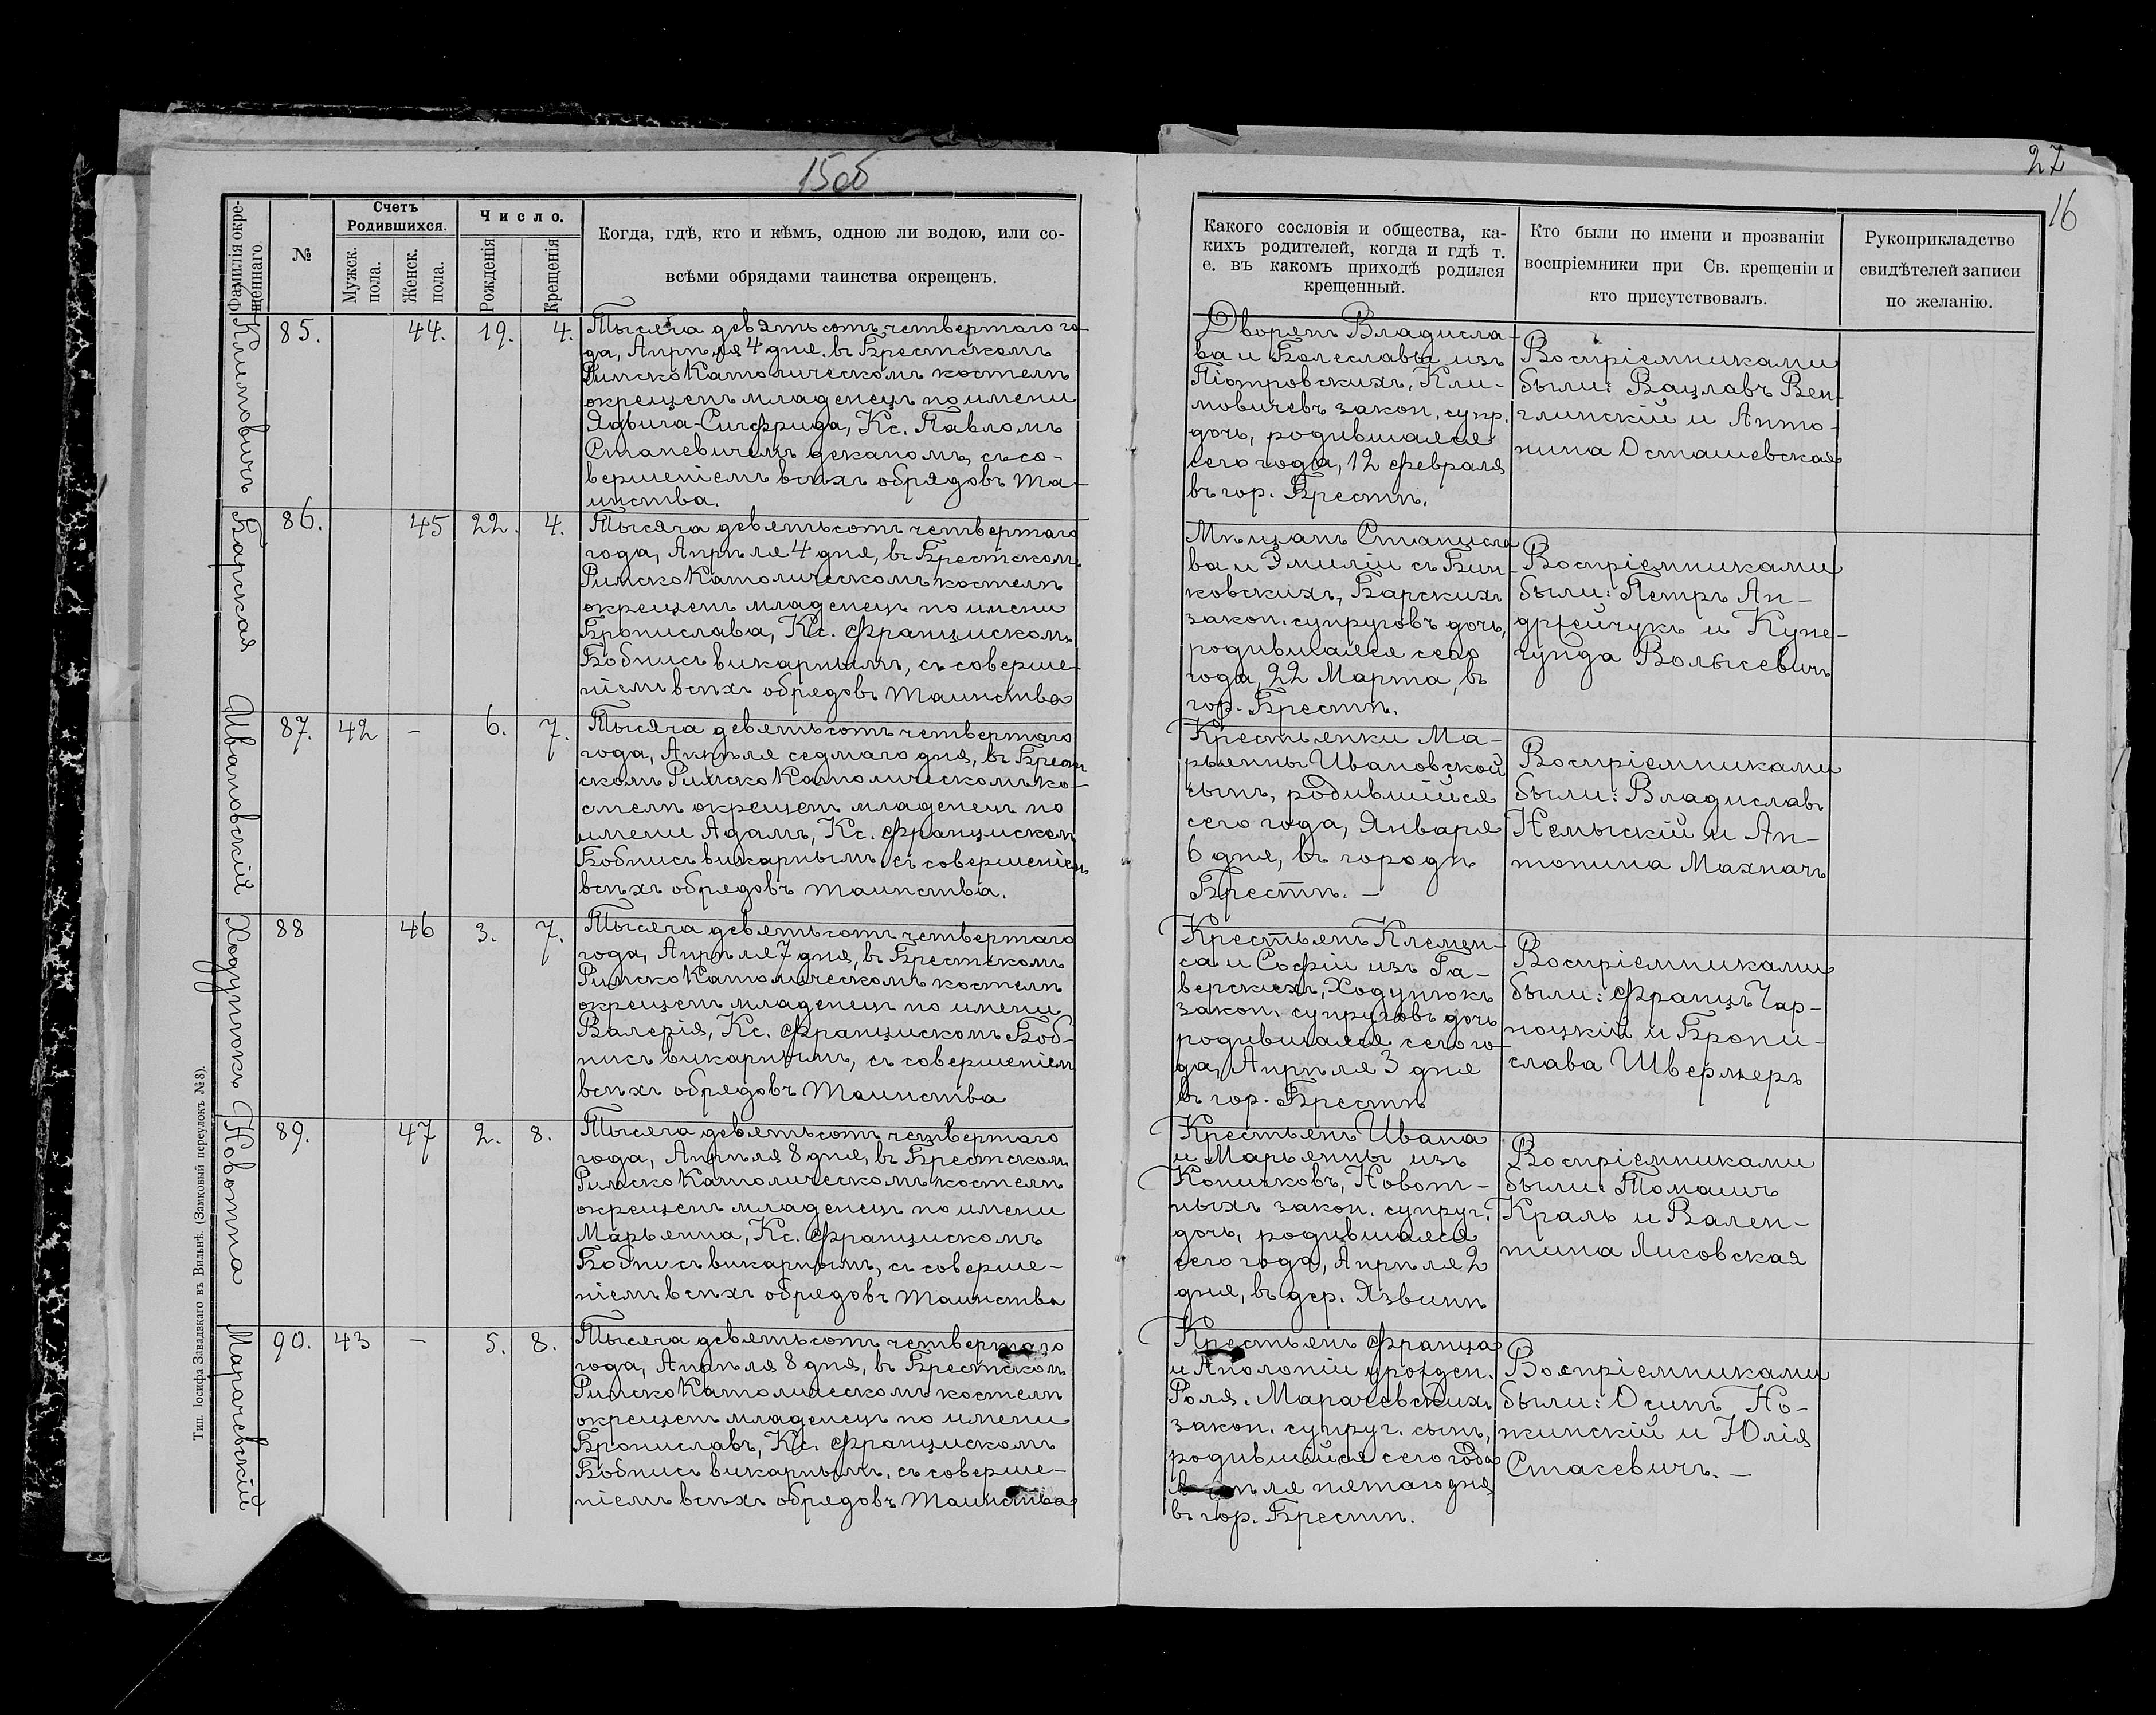 15об
27
16
Фамилія окре-
щеннаго.
№
Счетъ
Родившихся.
Мужск.
пола.
Женск.
пола.
Число.
Рожденія
Крещенія
Когда, гдѣ, кто и кѣмъ, одною ли водою, или со-
всѣми обрядами таинства окрещенъ.
Какого сословія и общества, ка-
кихъ родителей, когда и гдѣ т.
е. въ какомъ приходѣ родился
крещенный.
Кто были по имени и прозваніи
воспріемники при Св. крещеніи и
кто присутствовалъ.
Рукоприкладство
свидѣтелей записи
по желанію.
Климовичъ
85.
44.
19.
4.
Тысяча девятьсотъ четвертаго го-
да, Апрѣля 4 дня. въ Брестскомъ
РимскоКатолическомъ костелѣ
окрещенъ младенецъ по имени
Ядвига-Сигфрида, Кс. Павломъ
Станевичемъ деканомъ, съ со-
вершеніемъ всѣхъ обрядовъ Та-
инства.
Дворянъ Владисла-
ва и Болеславы изъ
Піотровскихъ, Кли-
мовичевъ закон. супр.
дочь, родившаяся
сего года, 12 февраля
въ гор. Брестѣ.
Воспріемниками
были: Вацлавъ Вен-
глинскій и Анто-
нина Осташевская
Барская
86.
45
22.
4.
Тысяча девятьсотъ четвертаго
года, Апрѣля 4 дня, въ Брестском.
РимскоКатолическомъ костелѣ
окрещенъ младенецъ по имени
Бронислава, Кс. Францискомъ
Бобнисъ викарнымъ, съ соверше-
ніемъ всѣхъ обрядовъ Таинства
Мѣщанъ Станисла
ва и Эмиліи съ Бин-
ковскихъ, Барскихъ
закон. супруговъ дочь,
родившаяся сего
года, 22 Марта, въ
гор. Брестѣ.
Воспріемниками
были: Петръ Ан-
дрейчукъ и Куне-
гунда Волысевичъ
Ивановскій
87.
42
-
6.
7.
Тысяча девятьсотъ четвертаго
года, Апрѣля седмаго дня, въ Брест
скомъ РимскоКатолическомъ ко-
стелѣ окрещенъ младенецъ по
имени Адамъ, Кс. Францискомъ
Бобнисъ викарнымъ съ совершеніем
всѣхъ обрядовъ таинства.
Крестьянки Ма-
рьянны Ивановской
сынъ, родившійся
сего года, Января
6 дня, въ городѣ
Брестѣ. -
Воспріемниками
были: Владиславъ
Немыскій и Ан-
тонина Махначъ
Ходунюкъ
88
46
3.
7.
Тысяча девятьсотъ четвертаго
года, Апрѣля 7 дня, въ Брестскомъ
РимскоКатолическомъ костелѣ
окрещенъ младенецъ по имени
Валерія, Кс. Францискомъ Боб-
нисъ викарнымъ, съ совершеніем
всѣхъ обрядовъ Таинства
Крестьянъ Клемен-
са и Софіи изъ Га-
верскихъ, Ходунюкъ
закон. супруговъ дочь
родившаяся сего го-
да, Апрѣля 3 дня
въ гор. Брестѣ
Воспріемниками
были: Францъ Чар-
ноцкій и Брони-
слава Швермеръ
Новотна
89.
47
2.
8.
Тысяча девятьсотъ четвертаго
года, Апрѣля 8 дня, въ Брестском.
РимскоКатолическомъ костелѣ
окрещенъ младенецъ по имени
Марьянна, Кс. Францискомъ
Бобнисъ викарнымъ, съ соверше-
ніемъ всѣхъ обрядовъ Таинства
Крестьянъ Ивана
и Марьянны изъ
Копичковъ, Новот-
ныхъ закон. супруг.
дочь, родившаяся
сего года, Апрѣля 2
дня, въ дер. Язвинѣ
Воспріемниками
были: Томашъ
Краль и Вален-
тина Лисовская
Марачевскій
90.
43
-
5.
8.
Тысяча девятьсотъ четвертаго
года, Апрѣля 8 дня, въ Брестском
РимскоКатолическомъ костелѣ
окрещенъ младенецъ по имени
Брониславъ, Кс. Францискомъ
Бобнисъ викарнымъ, съ соверше-
ніемъ всѣхъ обрядовъ Таинства
Крестьянъ Франца
и Аполоніи урожден.
Роля. Марачевскихъ
закон. супруг. сынъ,
родившійся сего года
Апрѣля пятаго дня
въ гор. Брестѣ.
Воспріемниками
были: Осипъ Но-
жинскій и Юлія
Стасевичъ. -
Тип. Іосифа Завадзкаго въ Вильнѣ. (Замковый переулокъ № 8).